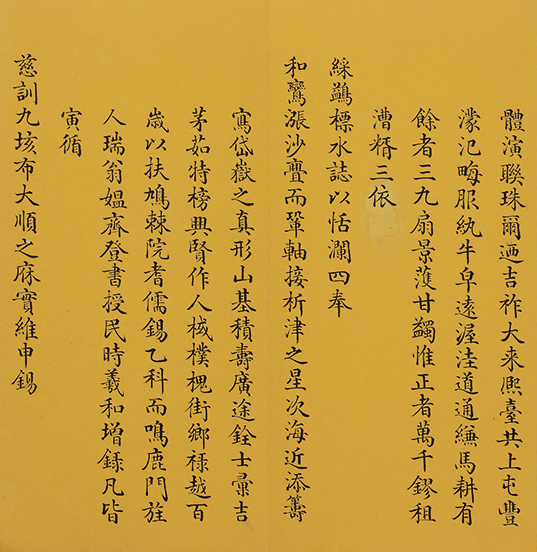 體演聯珠爾迺吉祚大来熈臺共上屯豐
濛氾畮服紈牛皁遠渥洼道通縑馬耕有
餘者三九扇景䕶甘蠲惟正者萬千鏐租
漕糈三依
綵鷁標水誌以恬瀾四奉
和鸞漲沙亹而鞏軸接析津之星次海近添籌
寫岱嶽之真形山基積壽廣途銓士彚吉
茅茹特榜興賢作人棫樸槐街鄉祿越百
歲以扶鳩棘院耆儒錫乙科而鳴鹿門旌
人瑞翁媪齊登書授民時羲和增錄凡皆
寅循
慈訓九垓布大順之庥實維申錫